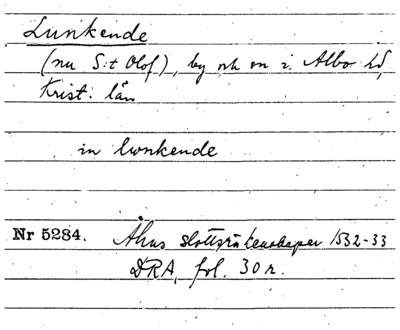 Lunkende
(nu S:t Olof), by och sn i. Albo hd
Krist. län
in lwnkende
Nr 5284. Åhus slottsräkenskaper 1532-33
DRA, fol. 30 r.